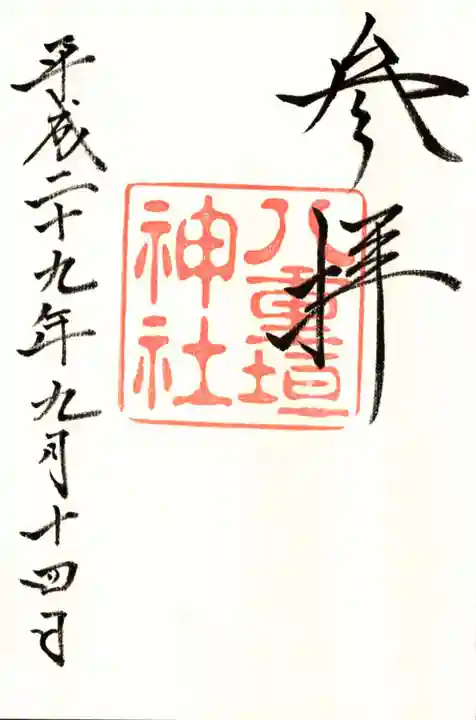 参拝
八重垣
神社
平成二十九年九月十四日